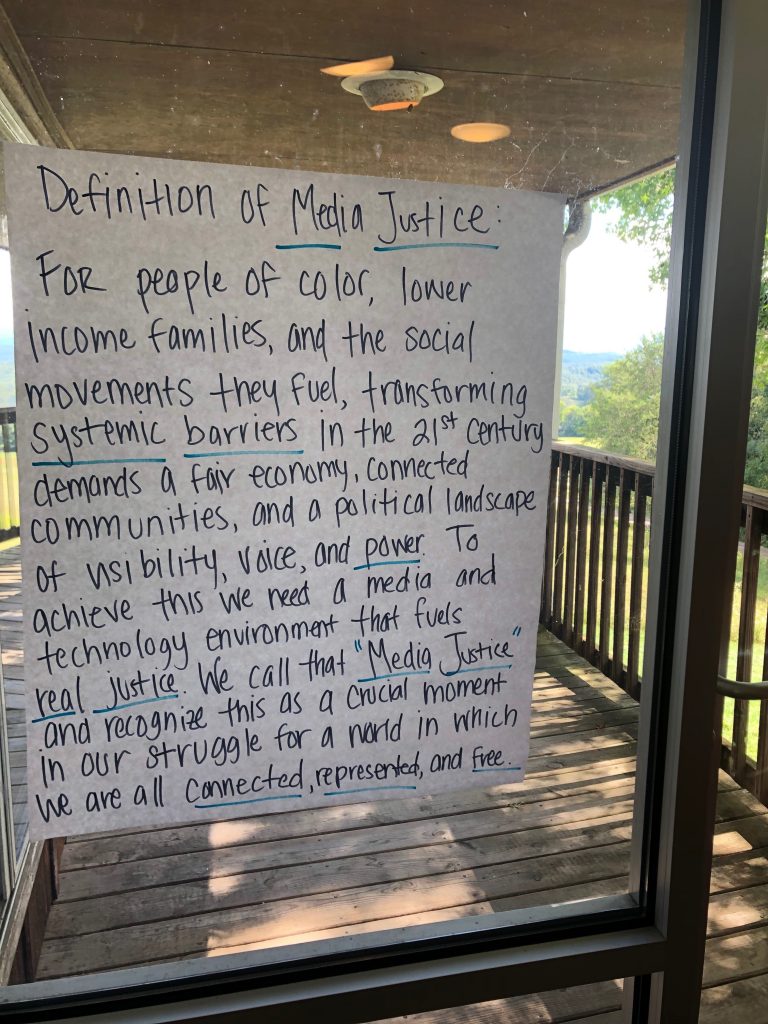 Definition of Media Justice:
For people of color, lower
income families, and the social
movements they fuel, transforming
systemic barriers in the 21st century
demands a fair economy, connected
communities, and a political landscape
of visibility, voice, and power. To
achieve this we need a media and
technology environment that fuels
real justice. We call that "Media Justice"
and recognize this as a crucial moment
in our struggle for a world in which
we are all connected, represented, and free.